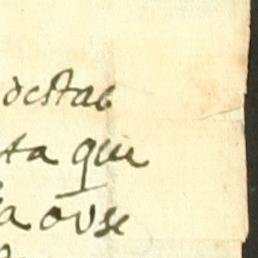 destas
ta que
a ovse